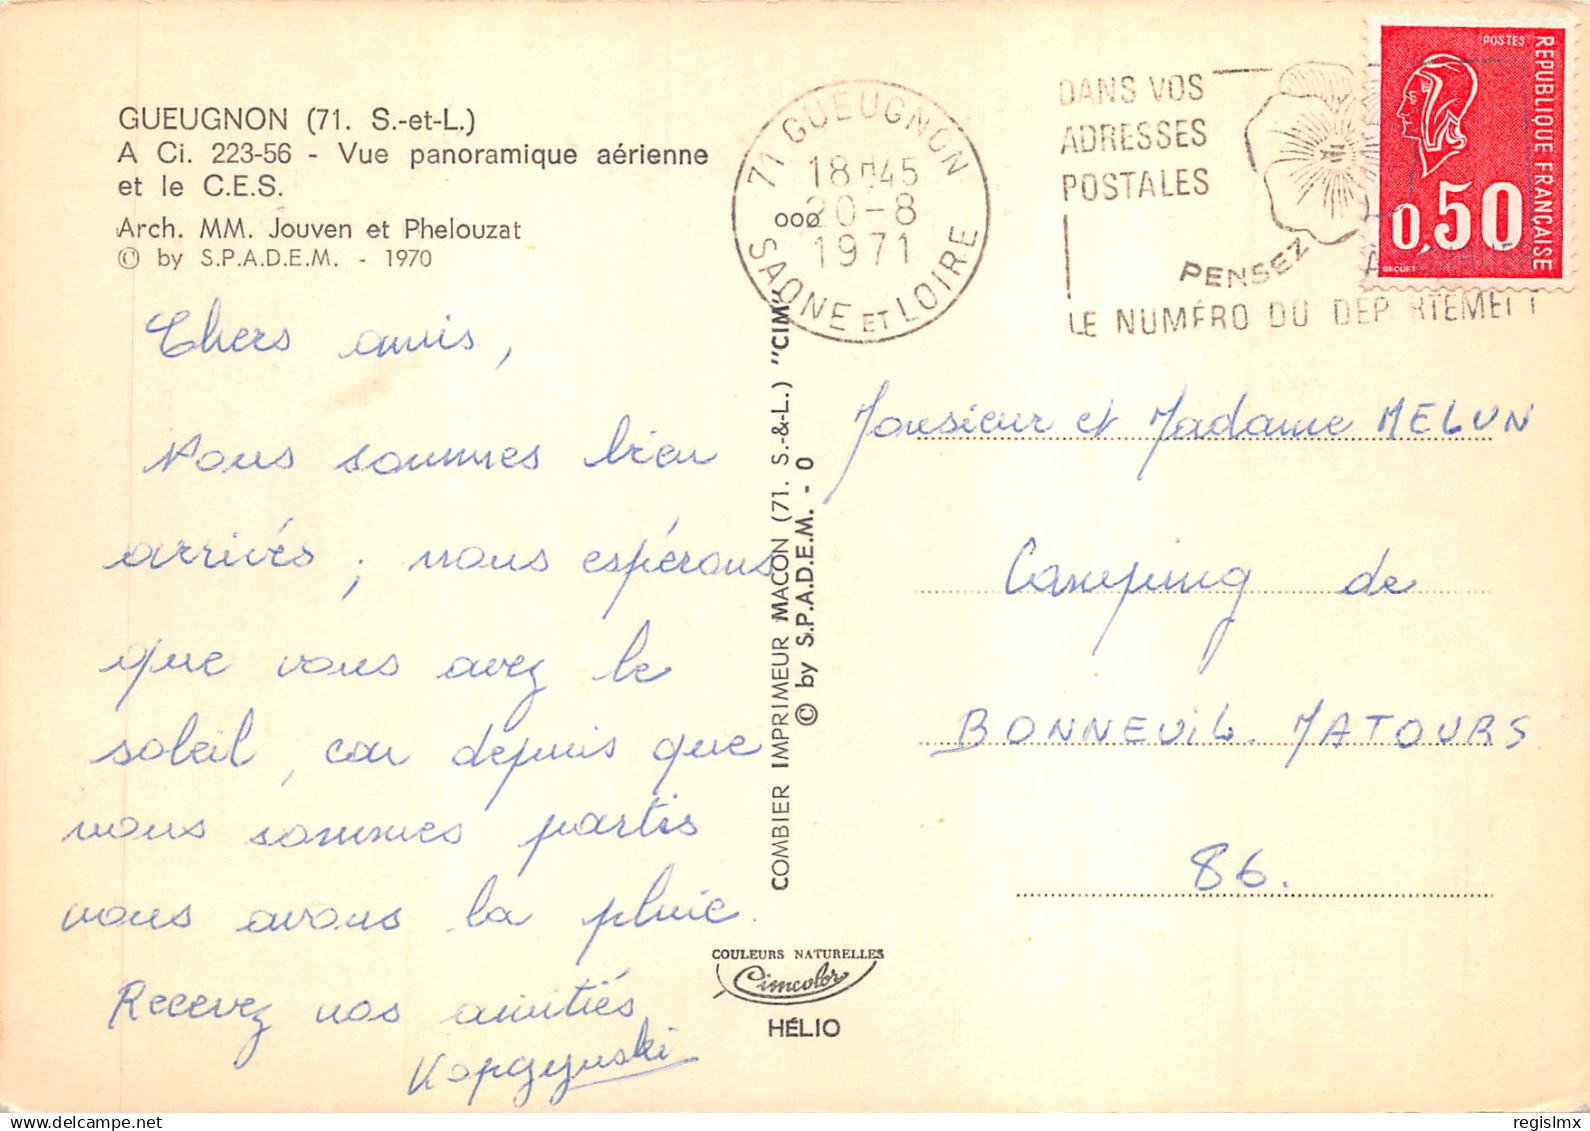 GUEUGNON (71. S.-et-L.)
A Ci. 223-56 - Vue panoramique aérienne
et le C.E.S.
Arch. MM. Jouven et Phelouzat
© by S.P.A.D.E.M. - 1970
Chers amis,
Nous sommes bien
arrivés ; nous espérons
que vous avez le
soleil, car depuis que
nous sommes partis
nous avons la pluie.
Recevez nos amitiés
COMBIER IMPRIMEUR MACON (71. S.-&-L.) "CIM"
© by S.P.A.D.E.M. - O
COULEURS NATURELLES
Cimcolor
HÉLIO
71 GUEUGNON
18H45
20-8
1971
SAONE ET LOIRE
DANS VOS
ADRESSES
POSTALES
PENSEZ
LE NUMÉRO DU DEP RTEME T
POSTES
REPUBLIQUE FRANÇAISE
0,50
BEQUET
Monsieur et Madame MELUN
Camping de
BONNEUIL. MATOURS
86.
regislmx